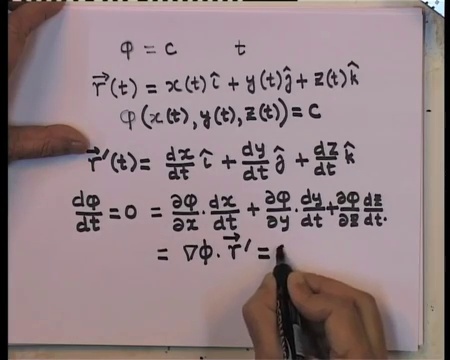 φ = c t
r⃗(t) = x(t) î + y(t) ĵ + z(t) k̂
φ(x(t), y(t), z(t)) = c
r⃗'(t) = dx/dt î + dy/dt ĵ + dz/dt k̂
dφ/dt = 0 = ∂φ/∂x · dx/dt + ∂φ/∂y · dy/dt + ∂φ/∂z dz/dt.
= ∇φ · r⃗' =